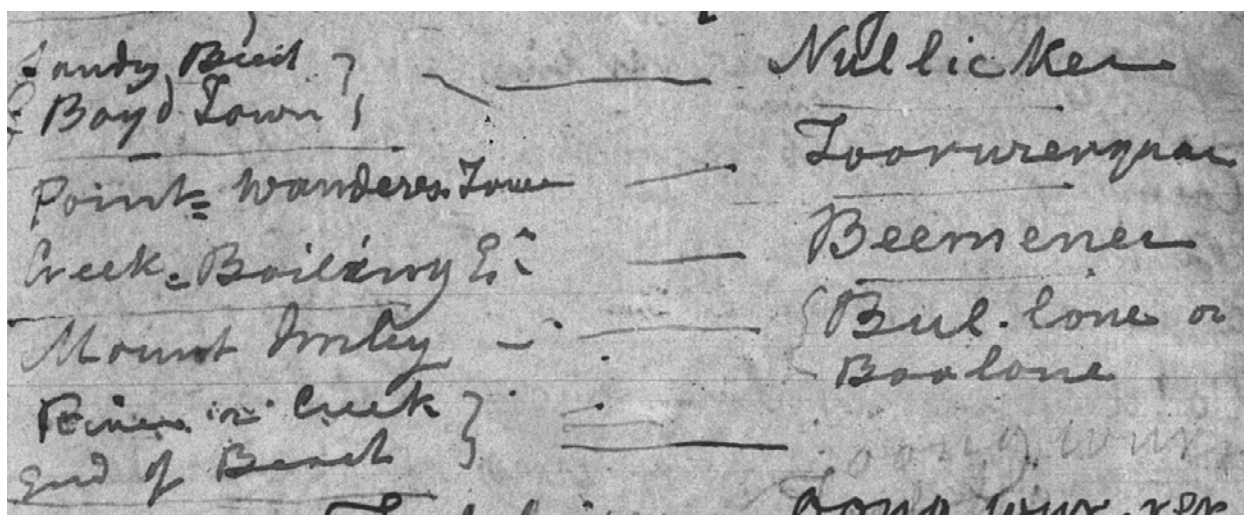 Sandy Beach } — Nullicker
& Boyd Town }
Point = Wanderer Tower — Toorurenquar
Creek = Boiling — Beemener
Mount Imlay — { Bul.lone or
Boolone
River or Creek }
end of Beach }